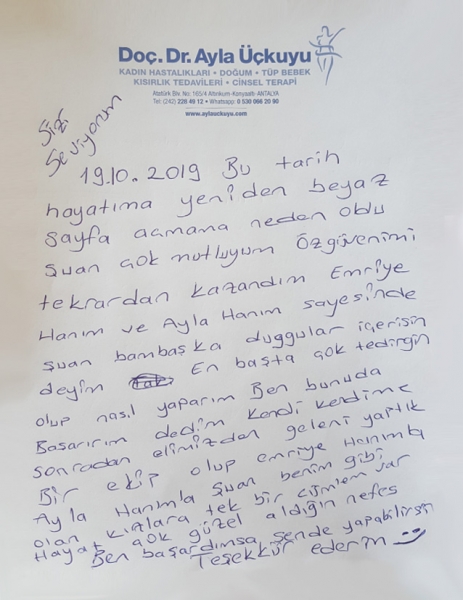 Doç. Dr. Ayla Üçkuyu
KADIN HASTALIKLARI • DOĞUM • TÜP BEBEK
KISIRLIK TEDAVİLERİ • CİNSEL TERAPİ
Atatürk Blv. No: 165/4 Altınkum-Konyaaltı ANTALYA
Tel: (242) 228 49 12 • Whatsapp: 0 530 066 20 90
www.aylauckuyu.com
Sizi
Seviyorum
19.10.2019 Bu tarih
hayatıma yeniden beyaz
sayfa açmama neden oldu
şuan çok mutluyum Özgüvenimi
tekrardan kazandım Emriye
Hanım ve Ayla Hanım sayesinde
şuan bambaşka duggular içerisin
deyim En başta çok tedirgin
olup nasıl yaparım Ben bunuda
Basarırım dedim kendi kendime
sonradan elimizden geleni yaptık
Bir ekip olup emriye Hanımla
Ayla Hanımla şuan benim gibi
olan kızlara tek bir cümlem var
Hayat çok güzel aldığın nefes
Ben başardımsa sende yapabilirsin
Teşekkür ederim